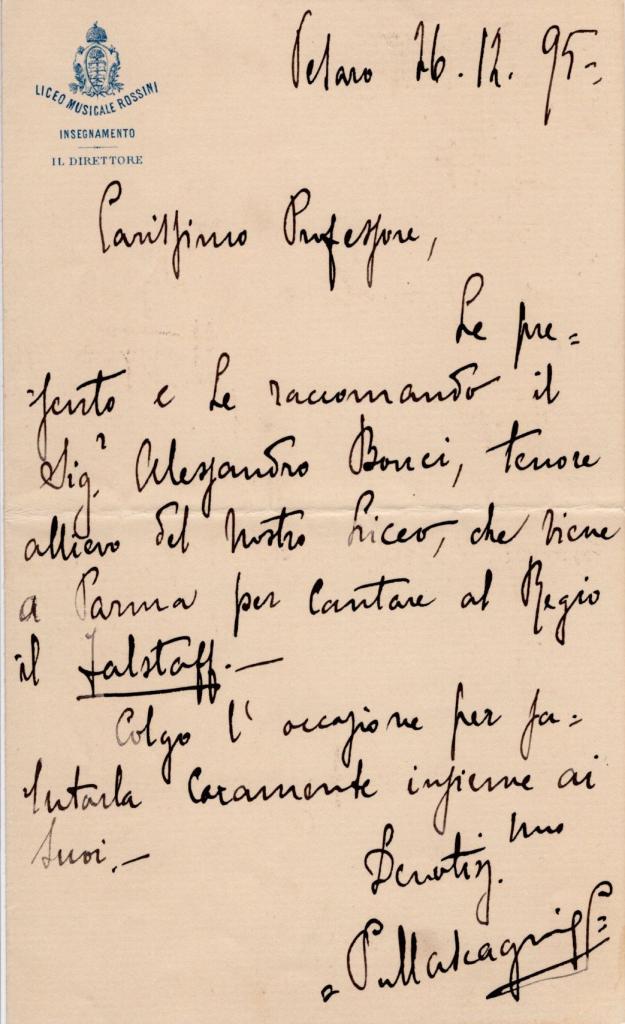 LICEO MUSICALE ROSSINI
INSEGNAMENTO
IL DIRETTORE
Pesaro 26.12.95=
Carissimo Professore,
Le pre=
sento e Le raccomando il
Sig.r Alessandro Bonci, tenore
allievo del nostro Liceo, che viene
a Parma per cantare al Regio
il Falstaff.—
Colgo l'occasione per sa=
lutarla caramente insieme ai
suoi.—
Devotiss.mo
P. Mascagni